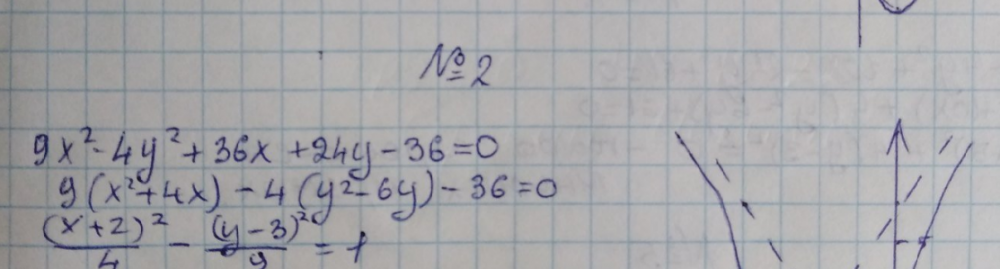 №2
9x² - 4y² + 36x + 24y - 36 = 0
9(x² + 4x) - 4(y² - 6y) - 36 = 0
(x+2)²/4 - (y-3)²/9 = 1